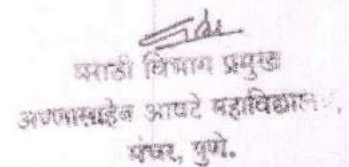 मराठी विभाग प्रमुख
अण्णासाहेब आवटे महाविद्यालय,
मंचर, पुणे.